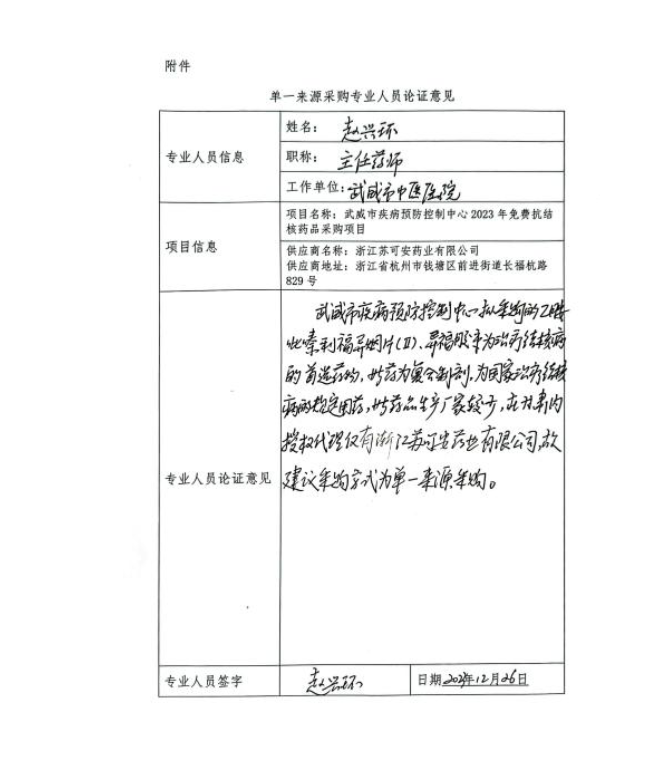 附件
单一来源采购专业人员论证意见
专业人员信息
姓名： 赵兴环
职称： 主任药师
工作单位：武威市中医医院
项目信息
项目名称：武威市疾病预防控制中心 2023 年免费抗结
核药品采购项目
供应商名称：浙江苏可安药业有限公司
供应商地址：浙江省杭州市钱塘区前进街道长福杭路
829 号
专业人员论证意见
武威市疾病预防控制中心拟采购的乙胺
吡嗪利福异烟片(Ⅱ)、异福胶囊为治疗结核病
的首选药物，此药为复合制剂，为国家治疗结核
病的规定用药，此药品生产厂家较少，在甘肃内
授权代理仅有浙江苏可安药业有限公司，故
建议采购方式为单一来源采购。
专业人员签字
赵兴环
日期 2023年12月26日